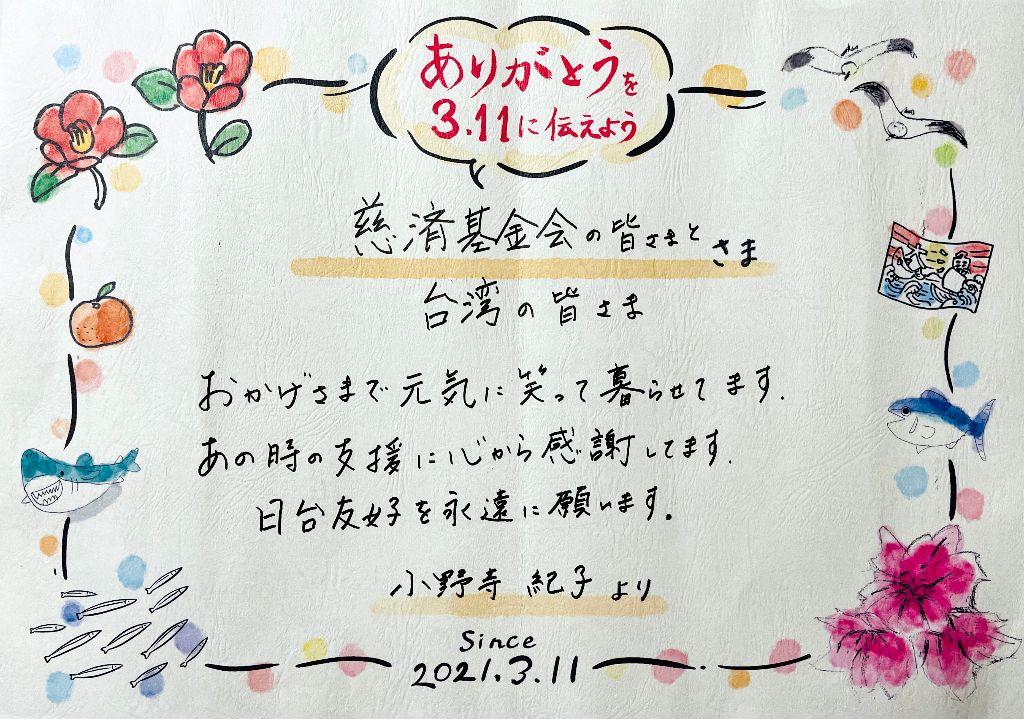 ありがとうを
3.11に伝えよう
慈済基金会の皆さまと
さま
台湾の皆さま
おかげさまで元気に笑って暮らせてます.
あの時の支援に心から感謝してます.
日台友好を永遠に願います。
小野寺 紀子より
Since
2021.3.11